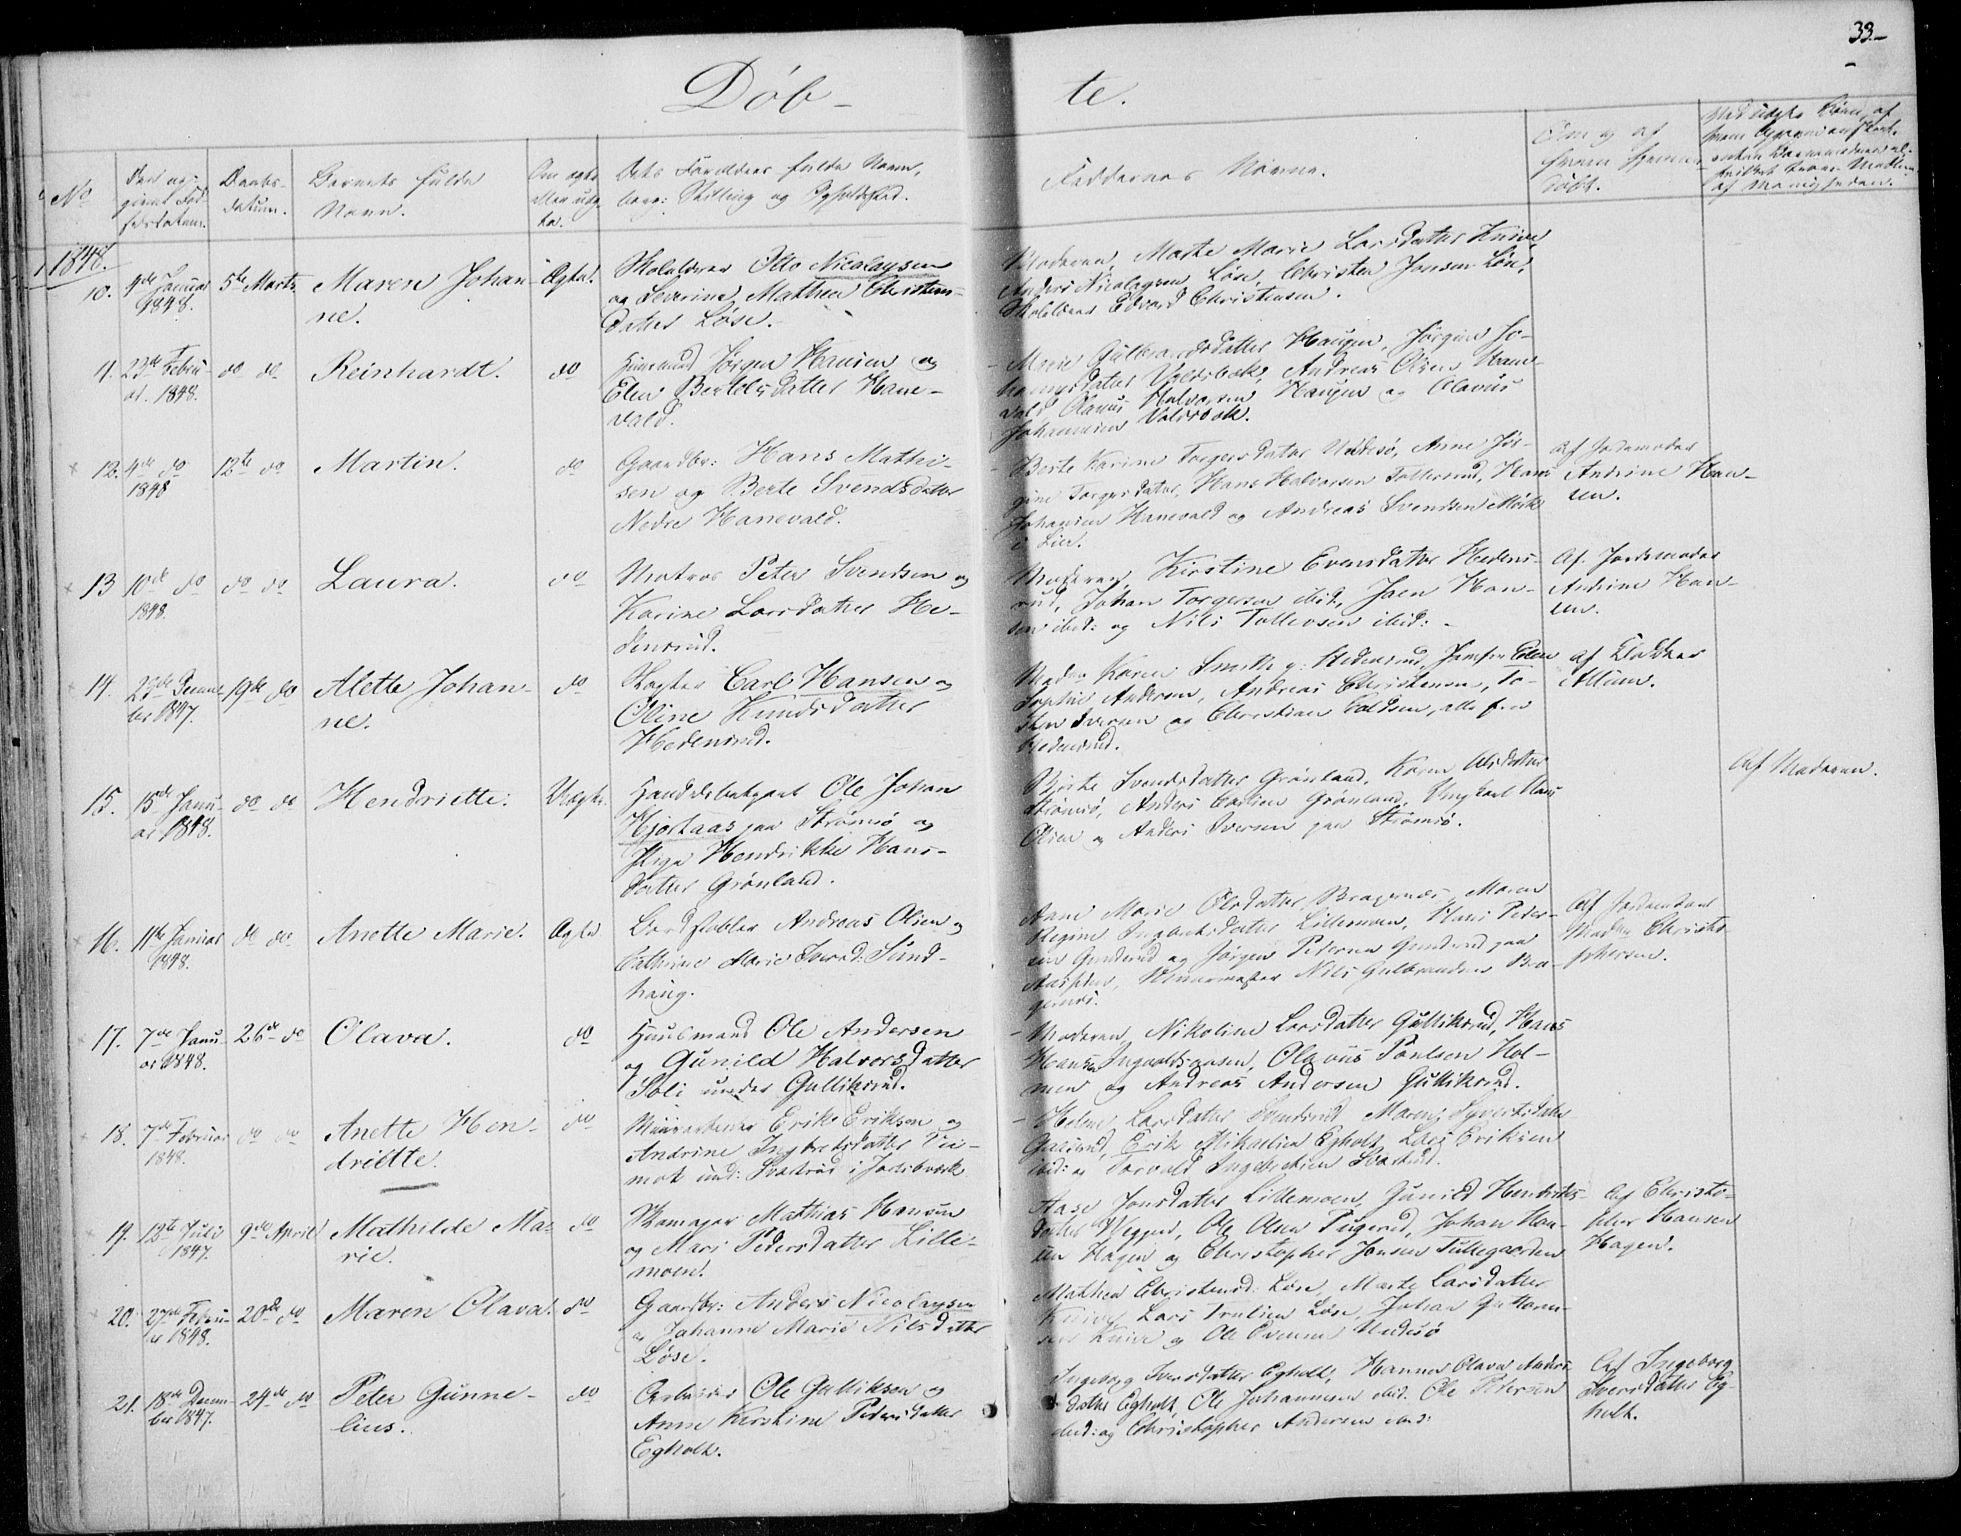 33.
Döb-
te.
No
Den op-
givne Fød-
selsdatum.
Daabs-
datum.
Barnets fulde
Navn.
Om ægte
eller uæg-
te.
Dets Forældres fulde Navn,
Stilling og Opholdssted.
Faddernes Navne.
Om og af
hvem hjemme-
døbt.
1848.
10.
4de Januar
1848.
5te Marts
Maren Johan-
ne.
Ægte.
Skolelærer Otto Nicolaysen
og Severine Mathea Christens-
datter Løse.
Moderen, Marte Marie Larsdatter Knive,
Anders Nicolaysen Løse, Christen Jonsen Løse,
Skolelærer Edvard Christensen.
11.
23de Febru-
ar. 1848.
do do
Reinhardt.
do
Huusmand Jörgen Hansen og
Elen Bertelsdatter Hane-
vald.
Marie Gulbrandsdatter Haugen, Jørgine Jo-
hannesdatter Valdsbæk, Andreas Olsen Hane-
vald, Olaus Halvorsen Haugen og Olavus
Johannesen Valdsbæk.
12.
4de do
1848
12te do
Martin.
do
Gaardbr: Hans Mathi-
sen og Berte Svendsdatter
Nedre Hanevald.
Berte Karine Torgersdatter Undesø, Anne Jør-
gine Torgersdatter, Hans Halvorsen Tollerud, Hans
Johansen Hanevald og Andreas Svendsen Mørk
i Lier.
Af Jordemoder
Andrine Han-
sen.
13
10de do
1848
do do
Laura.
do
Matros Peter Svendsen og
Karine Larsdatter He-
densrud.
Moderen, Kirstine Evensdatter Hedens-
rud, Johan Torgersen ibid, Joen Han-
sen ibid: og Nils Tollevsen ibid:
Af Jordemoder
Andrine Han-
sen.
14.
23de Decem-
ber 1847.
19de do
Alette Johan-
ne.
do
Carl Hansen og
Oline Knudsdatter
Hedensrud.
Madm Karen Smith g: Hedensrud, Jomfru Elen
Sophie Andersen, Andreas Christensen, To-
Iversen og Christian Carlsen, alle fra
Hedensrud.
Af Klokker
Allum.
15.
15de Janu-
ar 1848.
do do
Hendriette.
Uægte.
Handelsbetjent Ole Johan
Hjortaas paa Strømsø og
Pige Hendrikke Hans-
datter Grønland.
Berte Svendsdatter Grønland, Karen Olsdatter
Strømsø, Anders Carlsen Grønland, Ungkarl Hans
Olsen og Anders Iversen paa Strømsø.
Af Moderen.
16.
11te Januar
1848.
do do
Anette Marie.
Ægte
Bordstabler Andreas Olsen og
Cathrine Marie Sund-
haug.
Anne Marie Olsdatter Bragernes, Maren
Regine Ingebretsdatter Lillemoen, Hans Peder-
sen Gunderud og Jørgen Pedersen Gunderud paa
Nils Gulbrandsen Bra-
gernes.
Af Jordemoder
Madm Christo-
phersen.
17.
7de Janu-
ar 1848.
26de do
Olava.
do
Huusmand Ole Andersen
og Gunild Halvorsdatter
Soli under Gulliksrud.
Moderen, Nikoline Larsdatter Gulliksrud, Hans
Hansen Ingvaldsaasen, Olavus Poulsen Hol-
men og Andreas Andersen Gulliksrud.
18.
7de Februar
1848.
do do
Anette Hen-
driette.
do
Erik Eriksen og
Andrine Ingebretsdatter Ve-
mork und: i Jarlsberk
Helene Larsdatter Maren Syvertsdatter
Erik Mikaelsen Egholt, Lars Eriksen
ibid: og Torvald Ingebretsen
19.
13te Juli
1847.
9de April
Mathilde Ma-
rie.
do
Skomager Mathias Hansen
og Mari Pedersdatter Lille-
moen.
Aase Jonsdatter Lillemoen, Gunild Hendriks-
datter Veggen, Ole Olsen Pugerud, Johan Han-
sen Hagen og Christopher Jensen Tuftegaarden
Af Christo-
pher Hansen
Hagen.
20.
27de Febru-
ar 1848.
20de do
Maren Olava.
do
Gaardbr: Anders Nicolaysen
og Johanne Marie Nilsdatter
Løse.
Mathea Christensd: Løse, Marte Larsdatter
Knive, Lars Truelsen Løse, Johan Guttorm-
sen Knive og Ole Evensen Undesø
21.
18de Decem-
ber 1847.
24de do
Peter Gunne-
lius.
do
Arbeider Ole Gulliksen og
Anne Kirstine Pedersdatter
Egholt.
Ingeborg Iversdatter Egholt, Hanna Olava Anders-
datter Egholt, Ole Johannesen ibid. Ole Pedersen
ibid: og Christopher Andersen ibid:
Af Ingeborg
Iversdatter Eg-
holt.